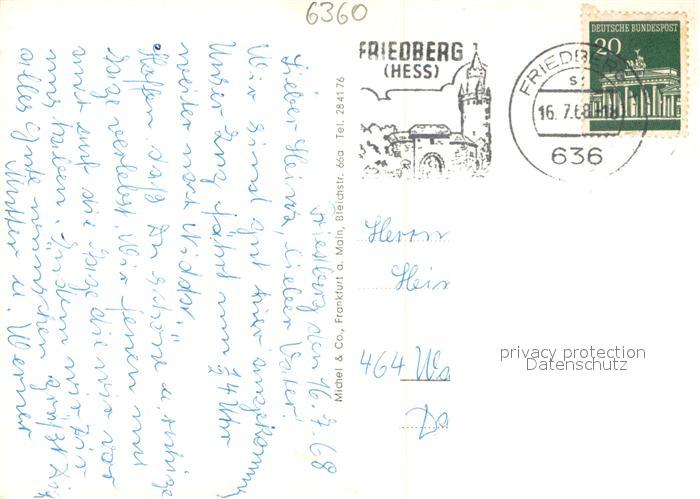 6360
FRIEDBERG
(HESS)
DEUTSCHE BUNDESPOST
20
FRIEDBERG
16.7.68-18
636
Friedberg den 16.7.68
Lieber Heinz, lieber Vater!
Wir sind gut hier angekommen,
Unser Zug fährt um 14 Uhr
weiter nach Nidda.
Hoffen, daß Du schöne u. ruhige
Tage verlebst. Wir freuen uns
auf die Tage die wir vor
uns haben. Indem wir Dir
alles Gute wünschen grüßt Dich
Mutter u. Werner
Michel & Co., Frankfurt a. Main, Bleichstr. 66a Tel. 284176
Herrn
Hein
464 Wa
privacy protection
Datenschutz